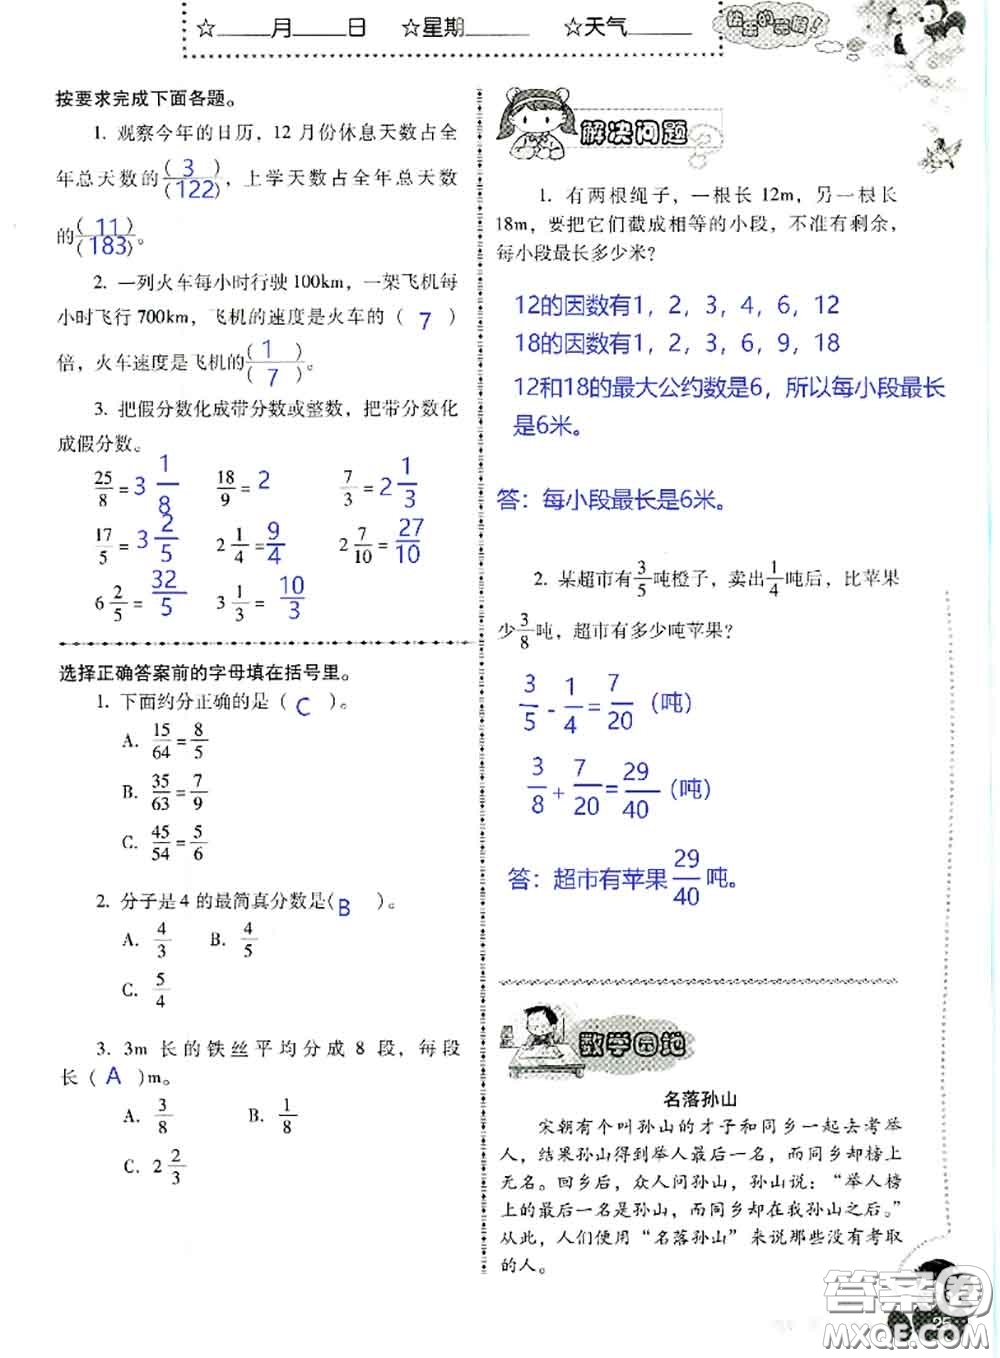 ☆____月____日 ☆星期____ ☆天气____
按要求完成下面各题。
1. 观察今年的日历，12 月份休息天数占全
年总天数的(3)/(122)，上学天数占全年总天数
的(11)/(183)。
2. 一列火车每小时行驶 100km，一架飞机每
小时飞行 700km，飞机的速度是火车的（ 7 ）
倍，火车速度是飞机的(1)/(7)。
3. 把假分数化成带分数或整数，把带分数化
成假分数。
25/8 = 3 1/8 18/9 = 2 7/3 = 2 1/3
17/5 = 3 2/5 2 1/4 = 9/4 2 7/10 = 27/10
6 2/5 = 32/5 3 1/3 = 10/3
选择正确答案前的字母填在括号里。
1. 下面约分正确的是（ C ）。
A. 15/64 = 8/5
B. 35/63 = 7/9
C. 45/54 = 5/6
2. 分子是 4 的最简真分数是( B )。
A. 4/3 B. 4/5
C. 5/4
3. 3m 长的铁丝平均分成 8 段，每段
长（ A ）m。
A. 3/8 B. 1/8
C. 2 2/3
解决问题
1. 有两根绳子，一根长 12m，另一根长
18m，要把它们截成相等的小段，不准有剩余，
每小段最长多少米？
12的因数有1，2，3，4，6，12
18的因数有1，2，3，6，9，18
12和18的最大公约数是6，所以每小段最长
是6米。
答：每小段最长是6米。
2. 某超市有3/5吨橙子，卖出1/4吨后，比苹果
少3/8吨，超市有多少吨苹果？
3/5 - 1/4 = 7/20（吨）
3/8 + 7/20 = 29/40（吨）
答：超市有苹果29/40吨。
数学园地
名落孙山
宋朝有个叫孙山的才子和同乡一起去考举
人，结果孙山得到举人最后一名，而同乡却榜上
无名。回乡后，众人问孙山，孙山说：“举人榜
上的最后一名是孙山，而同乡却在我孙山之后。”
从此，人们便用“名落孙山”来说那些没有考取
的人。
25
答案圈
MXQE.COM